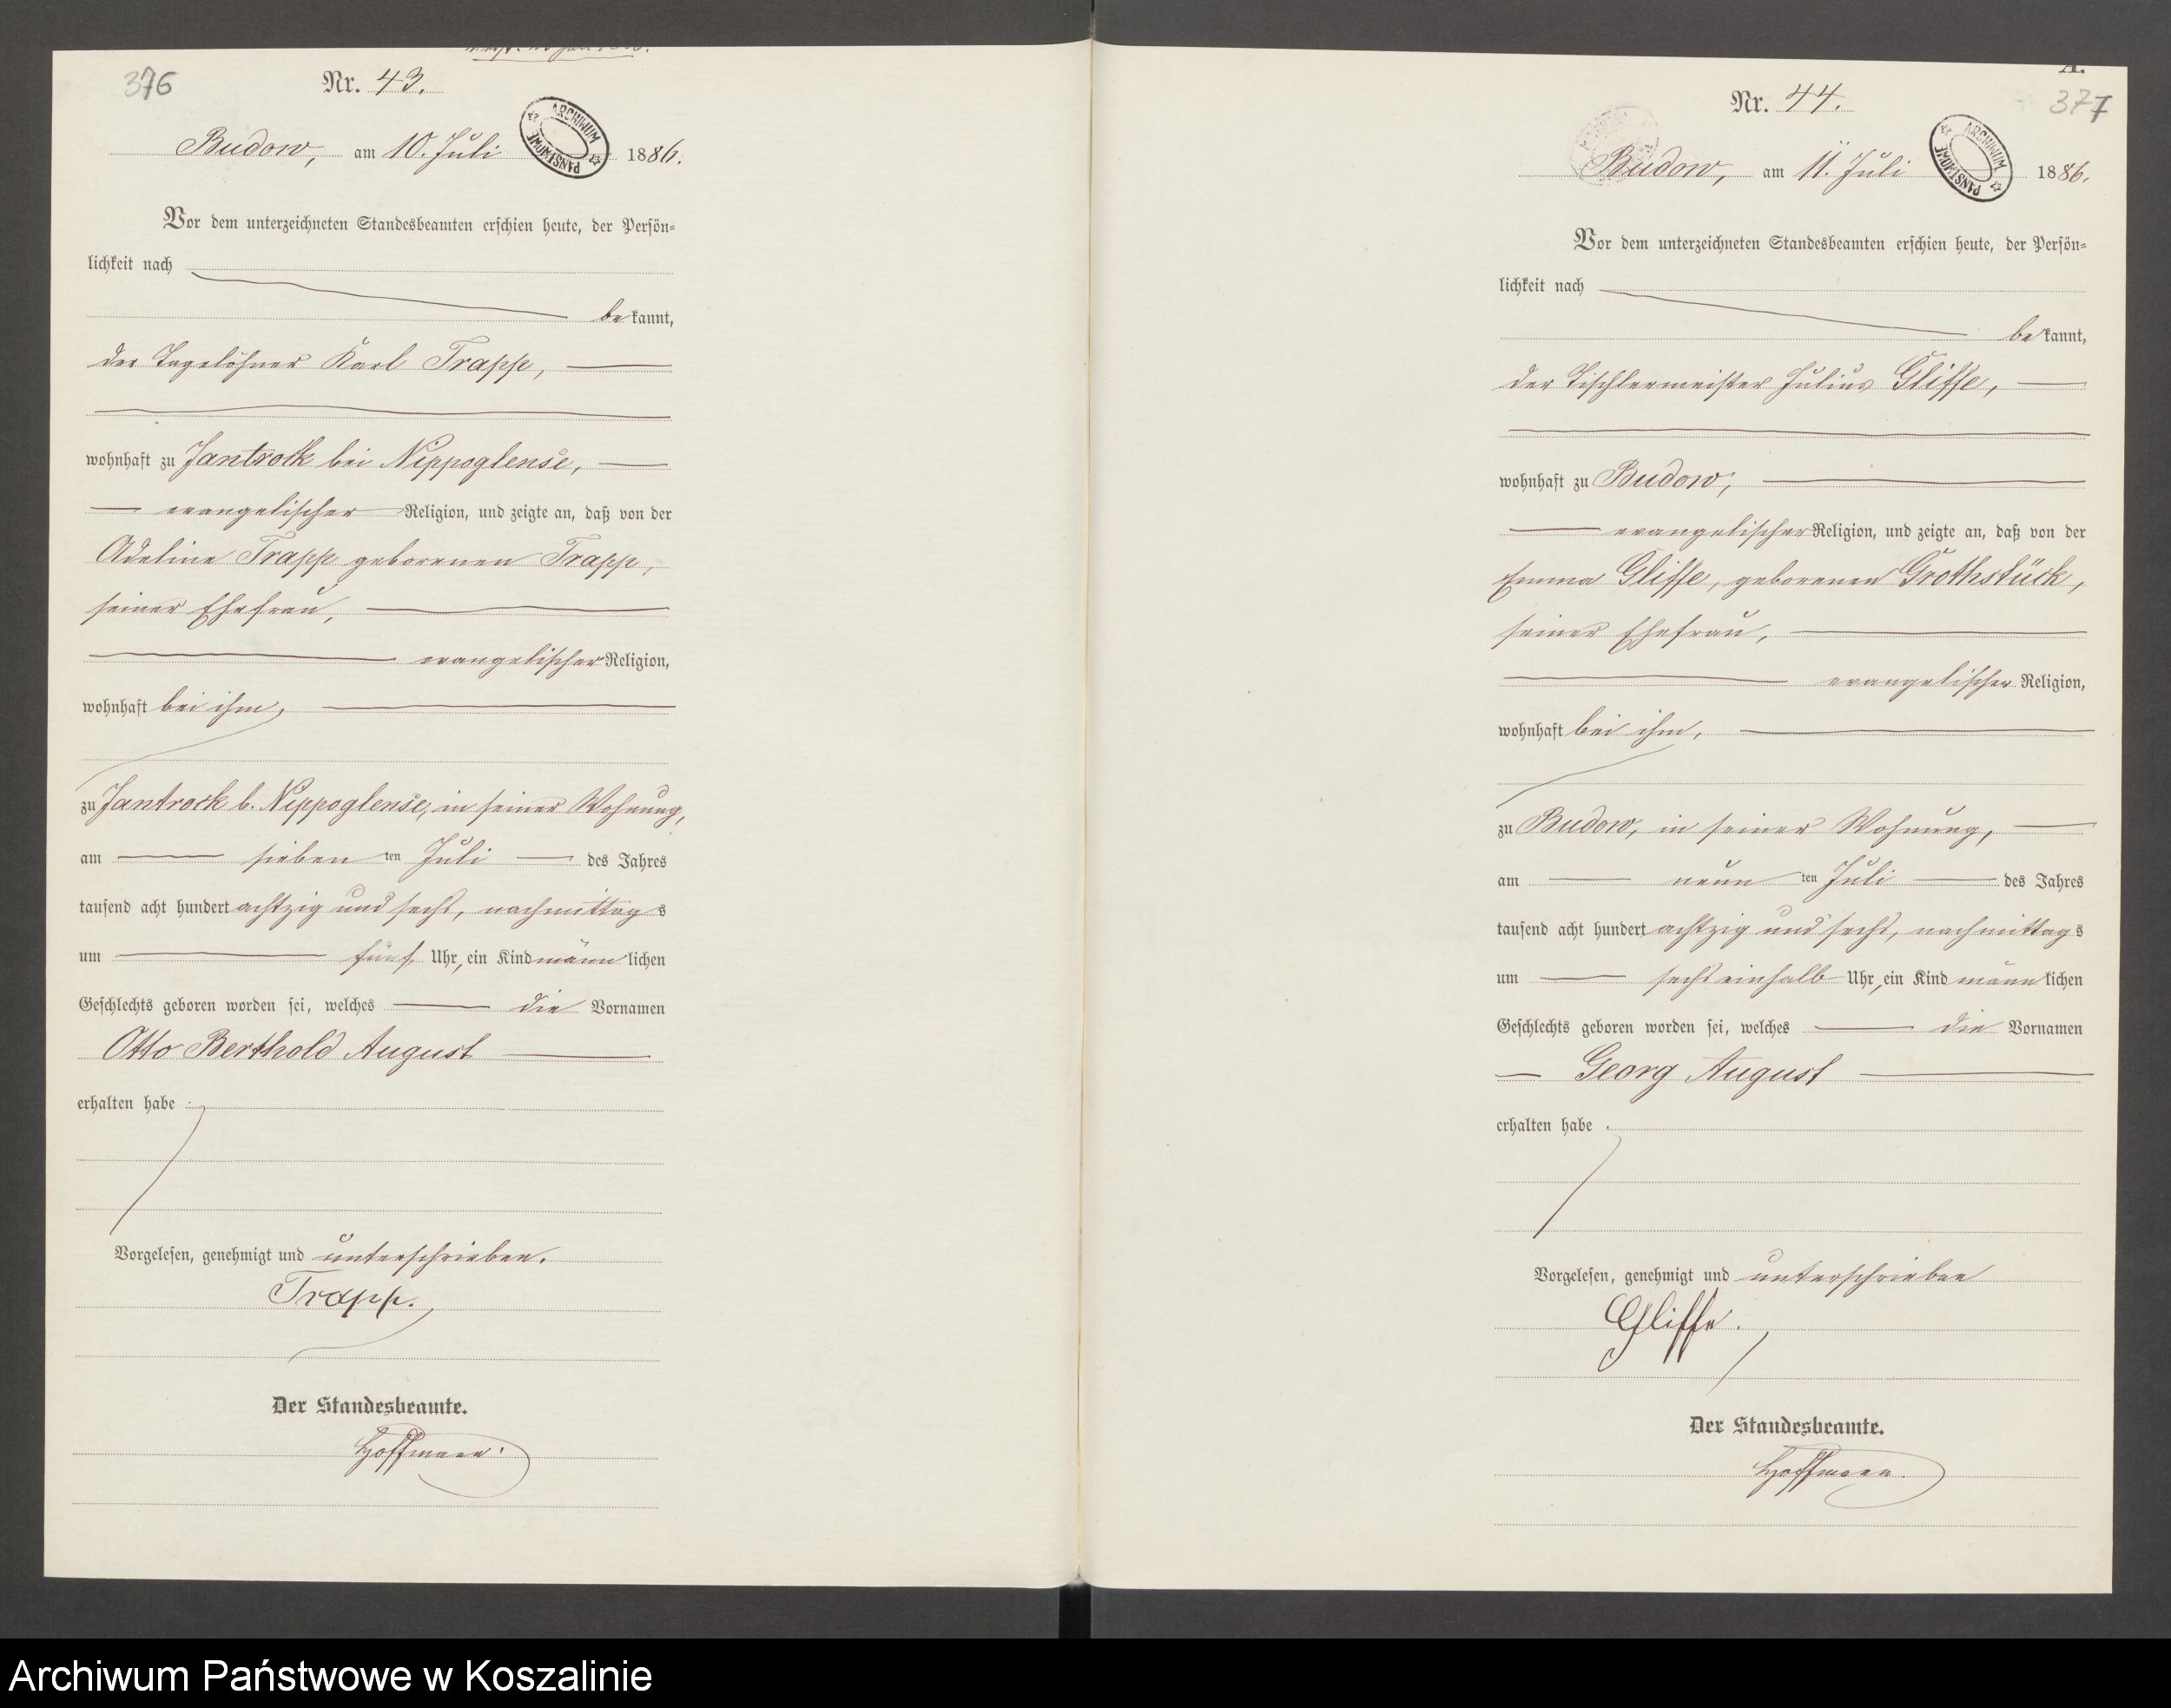 376
Nr. 43.
ARCHIWUM PAŃSTWOWE
Budow, am 10. Juli 1886.
Vor dem unterzeichneten Standesbeamten erschien heute, der Persön-
lichkeit nach
bekannt,
der Tagelöhner Karl Trapp,
wohnhaft zu Jantrock bei Nippoglense,
evangelischer Religion, und zeigte an, daß von der
Adeline Trapp geborenen Trapp,
seiner Ehefrau,
evangelischer Religion,
wohnhaft bei ihm,
zu Jantrock b. Nippoglense, in seiner Wohnung,
am sieben ten Juli des Jahres
tausend acht hundert achtzig und sechs, nachmittags
um fünf Uhr, ein Kind männlichen
Geschlechts geboren worden sei, welches die Vornamen
Otto Berthold August
erhalten habe.
Vorgelesen, genehmigt und unterschrieben.
Trapp.
Der Standesbeamte.
Hoffmann.
A.
377
Nr. 44.
ARCHIWUM PAŃSTWOWE
Budow, am 11. Juli 1886.
Vor dem unterzeichneten Standesbeamten erschien heute, der Persön-
lichkeit nach
bekannt,
der Tischlermeister Julius Gliffe,
wohnhaft zu Budow,
evangelischer Religion, und zeigte an, daß von der
Emma Gliffe, geborenen Grothstück,
seiner Ehefrau,
evangelischer Religion,
wohnhaft bei ihm,
zu Budow, in seiner Wohnung,
am neun ten Juli des Jahres
tausend acht hundert achtzig und sechs, nachmittags
um sechseinhalb Uhr, ein Kind männlichen
Geschlechts geboren worden sei, welches die Vornamen
Georg August
erhalten habe.
Vorgelesen, genehmigt und unterschrieben
Gliffe.
Der Standesbeamte.
Hoffmann.
Archiwum Państwowe w Koszalinie